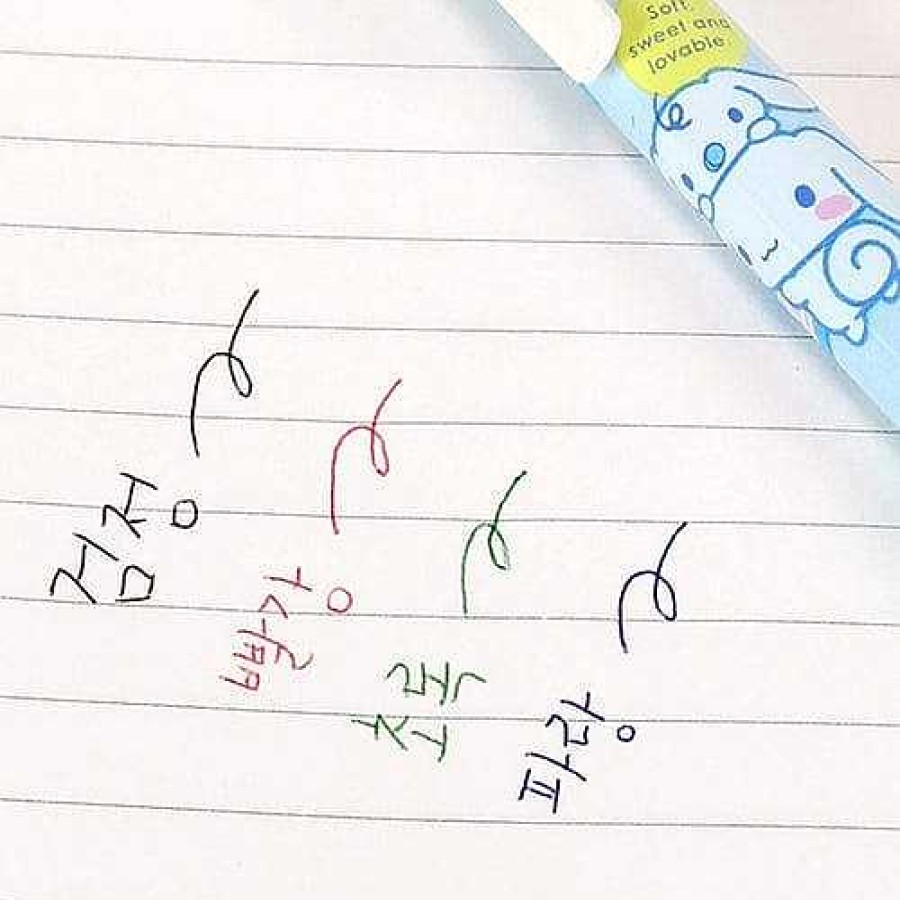 Soft
sweet and
lovable
검정
빨강
초록
파랑